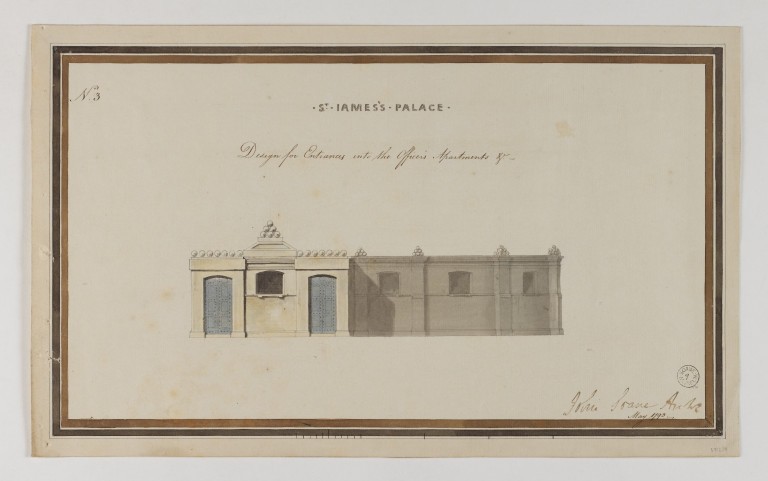 N. 3
· St. IAMES'S · PALACE ·
Design for Entrances into the Officers Apartments &c
John Soane Archt
May 1793